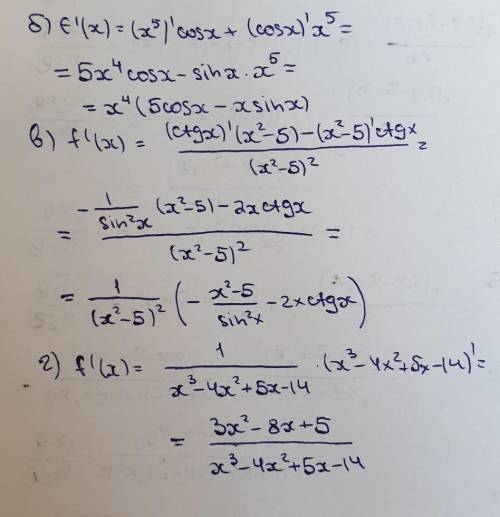 б) f'(x) = (x⁵)'cosx + (cosx)'x⁵ =
= 5x⁴cosx - sinx · x⁵ =
= x⁴(5cosx - xsinx)
в) f'(x) = ((ctgx)'(x²-5) - (x²-5)'ctgx) / (x²-5)² =
= (-1/sin²x (x²-5) - 2xctgx) / (x²-5)² =
= 1/(x²-5)² (- (x²-5)/sin²x - 2xctgx)
г) f'(x) = 1/(x³-4x²+5x-14) · (x³-4x²+5x-14)' =
= (3x²-8x+5) / (x³-4x²+5x-14)